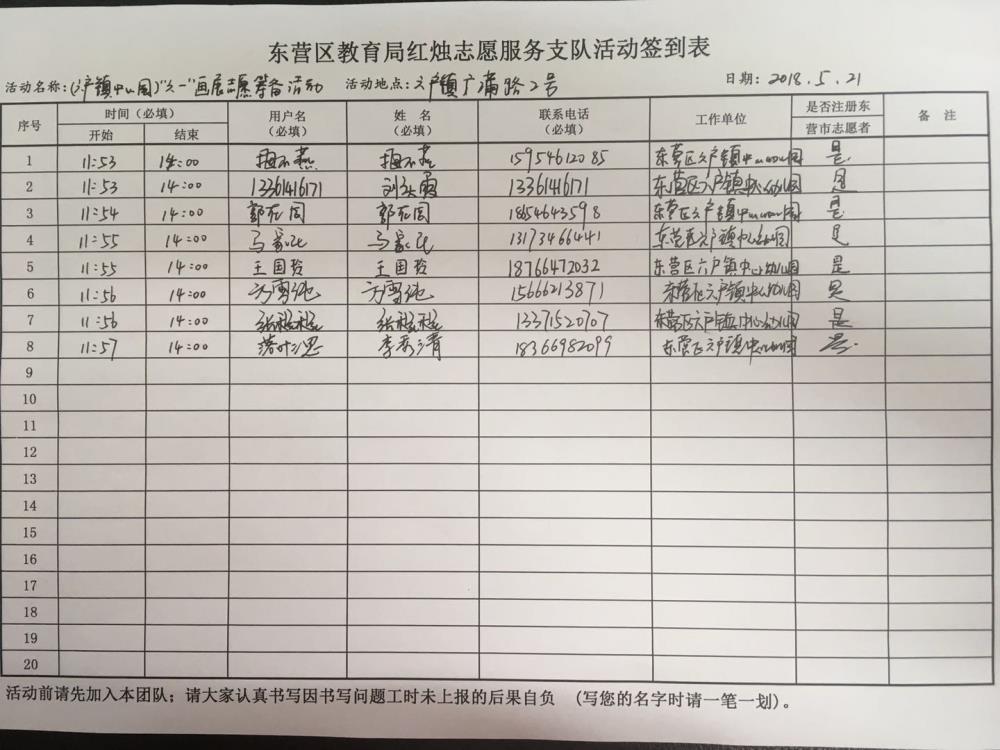 东营区教育局红烛志愿服务支队活动签到表
活动名称:(六户镇中心园)"六一"画展志愿筹备活动 活动地点:六户镇广蒲路2号 日期:2018.5.21
序号 时间(必填) 开始 结束 用户名(必填) 姓 名(必填) 联系电话(必填) 工作单位 是否注册东营市志愿者 备 注
1 11:53 14:00 15954612085 东营区六户镇中心幼儿园 是
2 11:53 14:00 13361416171 13361416171 东营区六户镇中心幼儿园 是
3 11:54 14:00 18654643598 东营区六户镇中心幼儿园 是
4 11:55 14:00 13173466441 东营区六户镇中心幼儿园 是
5 11:55 14:00 王国玲 王国玲 18766472032 东营区六户镇中心幼儿园 是
6 11:56 14:00 方雪纯 方雪纯 15666213871 东营区六户镇中心幼儿园 是
7 11:56 14:00 张程程 张程程 13371520707 东营区六户镇中心幼儿园 是
8 11:57 14:00 18366982099 东营区六户镇中心幼儿园 是
9
10
11
12
13
14
15
16
17
18
19
20
活动前请先加入本团队;请大家认真书写因书写问题工时未上报的后果自负 (写您的名字时请一笔一划)。